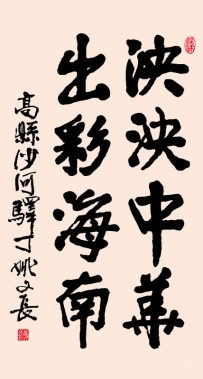 泱泱中華
出彩海南
高縣沙河驛丁姚文長